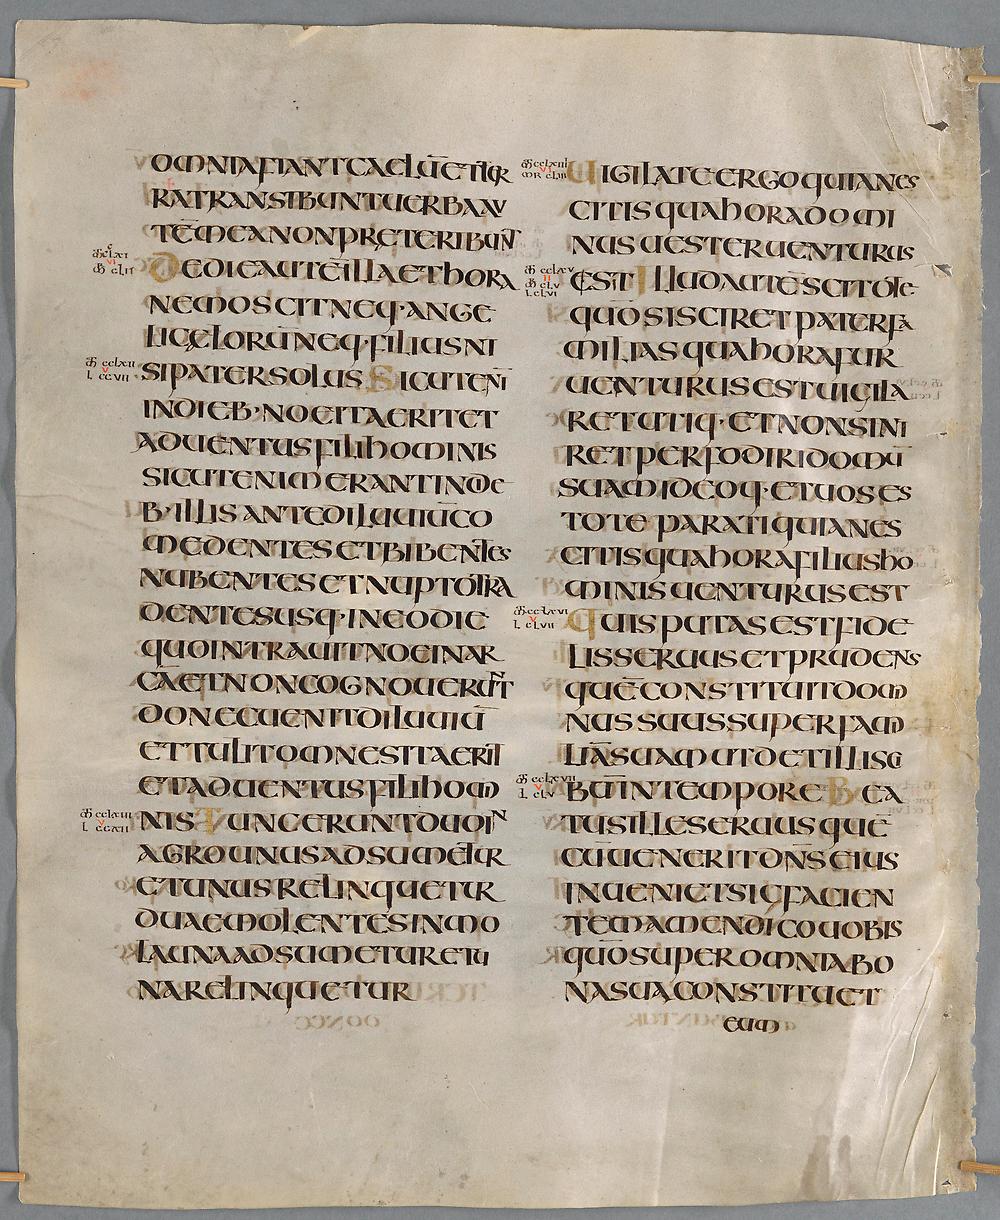 OMNIAFIANTCAELŪETTER
RATRANSIBUNTUERBAAU
TĒMEANONPRETERIBUNT
DEDIEAUTĒILLAETHORA
NEMOSCITNEQ·ANGE
LICELORŪNEQ·FILIUSNI
SIPATERSOLUS SICUTENĪ
INDIEB·NOEITAERITET
ADUENTUSFILIIHOMINIS
SICUTENIMERANTINDIE
B·ILLISANTEDILUUIŪCO
MEDENTESETBIBENTES
NUBENTESETNUPTŌTRA
DENTESUSQ·INEODIE
QUOINTRAUITNOEINAR
CĀETNONCOGNOUERUNT
DONECUENITDILUUIŪ
ETTULITOMNESITAERIT
ETADUENTUSFILIIHOMI
NIS TUNCERUNTDUOIN
AGROUNUSADSUMETUR
ETUNUSRELINQUETUR
DUAEMOLENTESINMO
LAUNAADSUMETURETU
NARELINQUETUR
UIGILATEERGOQUIANES
CITISQUAHORADOMI
NUSUESTERUENTURUS
EST ILLUDAUTĒSCITOTE
QUŌSISCIRETPATERFA
MILIASQUAHORAFUR
UENTURUSESTUIGILA
RETUTIQ·ETNONSINI
RETPERFODIRIDOMŪ
SUAMIDEOQ·ETUOSES
TOTEPARATIQUIANES
CITISQUAHORAFILIUSHO
MINISUENTURUSEST
QUISPUTASESTFIDE
LISSERUUSETPRUDENS
QUĒCONSTITUITDOMI
NUSSUUSSUPERFAMI
LIĀSUAMUTDETILLISCI
BŪINTEMPORE BEA
TUSILLESERUUSQUĒ
CŪUENERITDN̄SEIUS
INUENIETSICFACIEN
TEMAMENDICOUOBIS
QUŌSUPEROMNIABO
NASUACONSTITUET
EUM